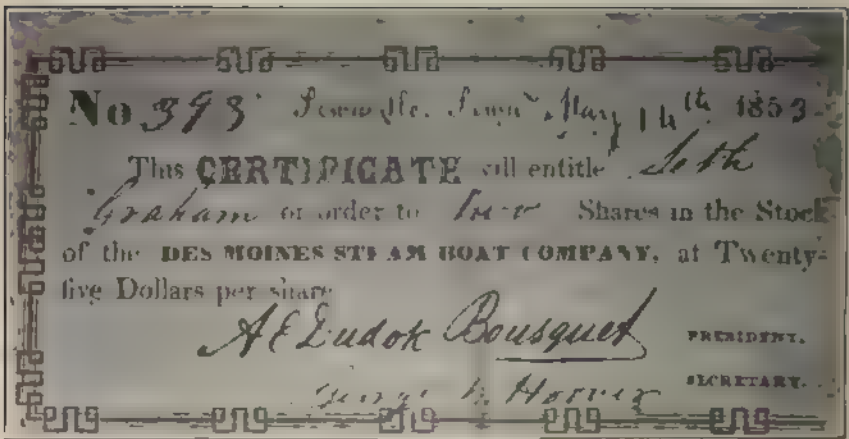 No 393 May 14th 1853
This CERTIFICATE will entitle Seth
Graham or order to two Shares in the Stock
of the DES MOINES STEAM BOAT COMPANY, at Twenty-
five Dollars per share
A E Dudok Bousquet PRESIDENT.
George Hoover SECRETARY.